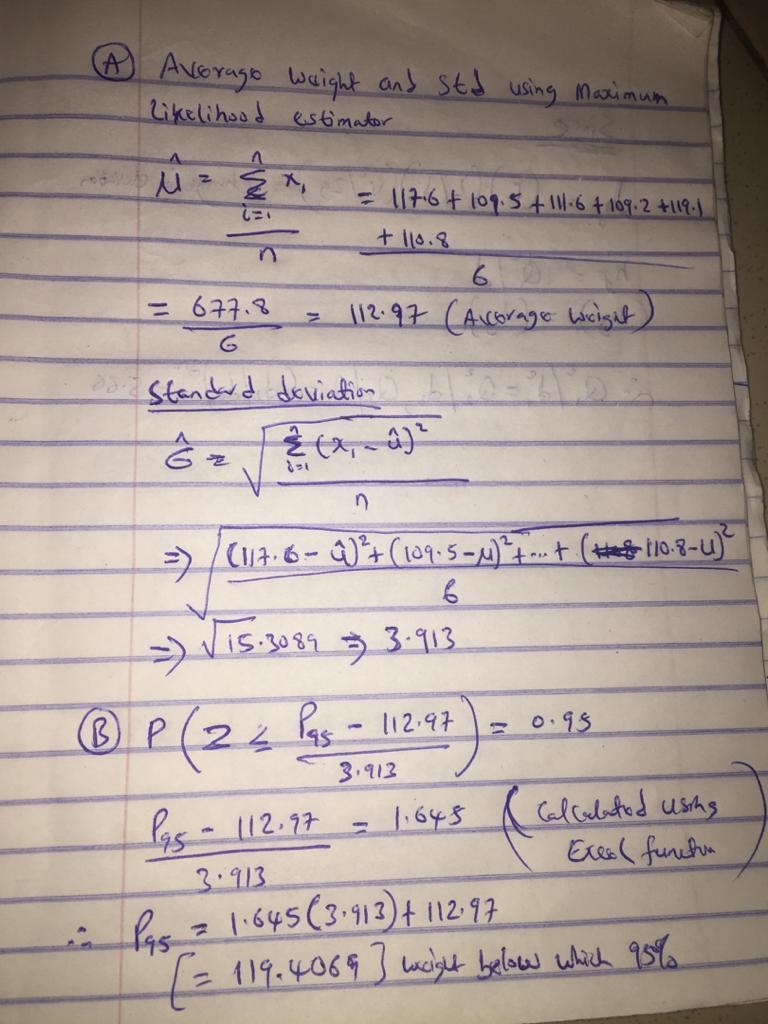 (A) Average weight and std using Maximum
Likelihood estimator
μ̂ = Σ_{i=1}^{n} x_i / n = 117.6 + 109.5 + 111.6 + 109.2 + 119.1 + 110.8 / 6
= 677.8 / 6 = 112.97 (Average Weight)
Standard deviation
σ̂ = √(Σ_{i=1}^{n} (x_i - û)² / n)
⇒ √((117.6 - û)² + (109.5 - μ)² + ... + (110.8 - U)² / 6)
⇒ √15.3089 ⇒ 3.913
(B) P(Z ≤ P₉₅ - 112.97 / 3.913) = 0.95
P₉₅ - 112.97 / 3.913 = 1.645 (Calculated using
Excel function)
∴ P₉₅ = 1.645(3.913) + 112.97
[= 119.4069] weight below which 95%